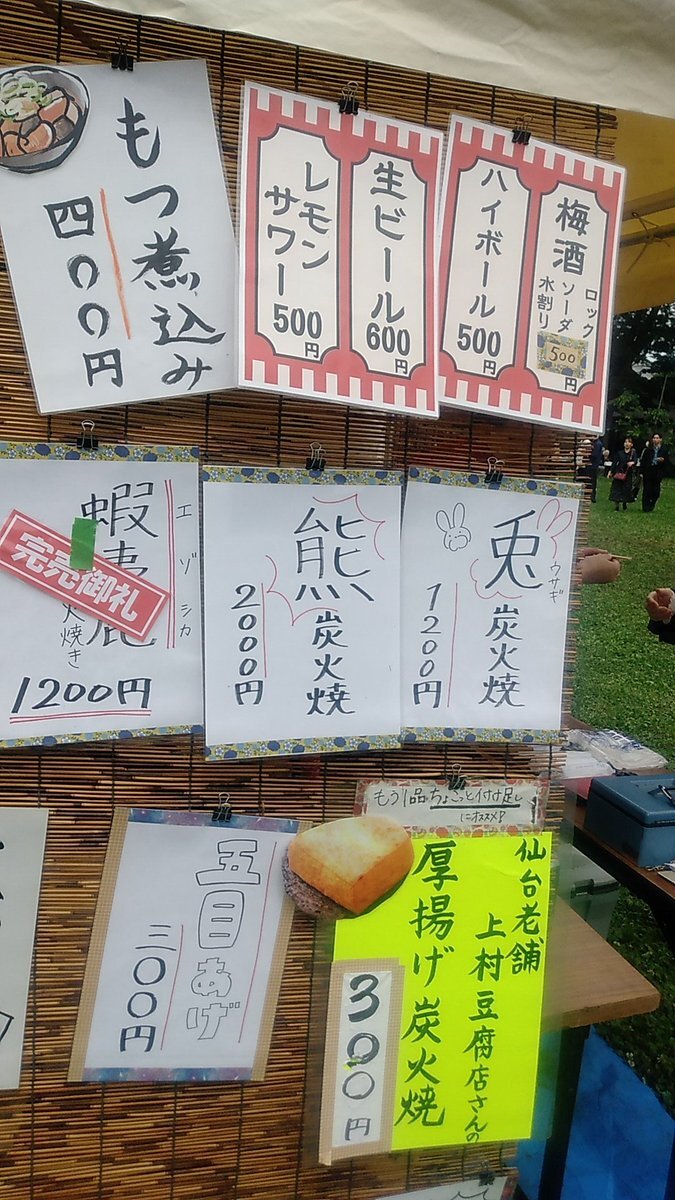 もつ煮込み
四〇〇円
生ビール
600円
レモン
サワー
500円
梅酒
ロック
ソーダ
水割り
500円
ハイボール
500円
兎
ウサギ
炭火焼
1200円
熊
炭火焼
2000円
エゾシカ
蝦
鹿
火焼き
完売御礼
1200円
もう1品ちょこっと付け足し
にオススメ!?
仙台老舗
上村豆腐店さんの
厚揚げ炭火焼
300円
五目あげ
三〇〇円